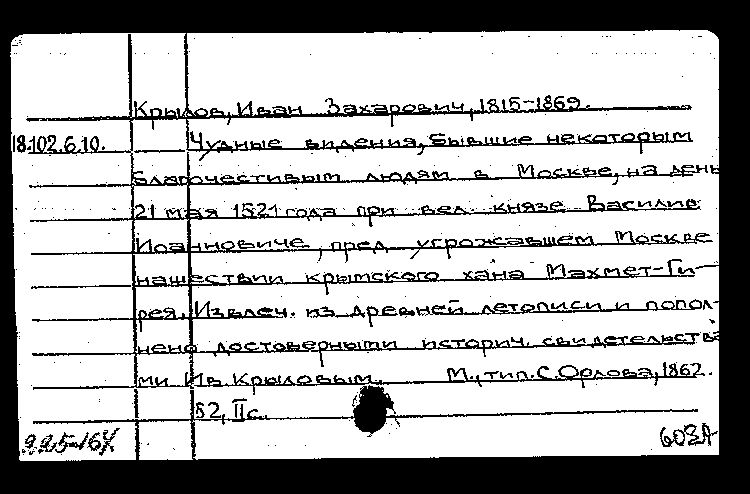 Крылов, Иван Захарович, 1815-1869.
18.102.6.10. Чудные видения, бывшие некоторым
благочестивым людям в Москве, на день
21 мая 1521 года при вел. князе Василие
Иоанновиче, пред угрожавшем Москве
нашествии крымского хана Махмет-Ги-
рея. Извлеч. из древней летописи и попол-
нено достоверными историч. свидетельства
ми Ив. Крыловым. М., тип. С. Орлова, 1862.
52, II с.